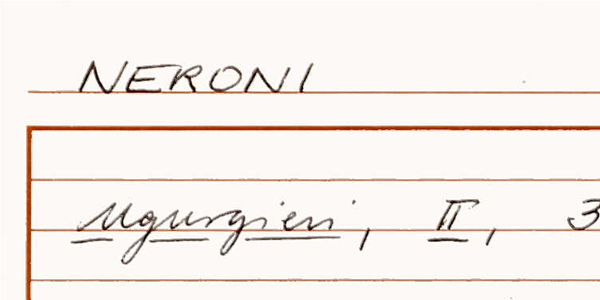 NERONI
Ugurgieri, II, 3